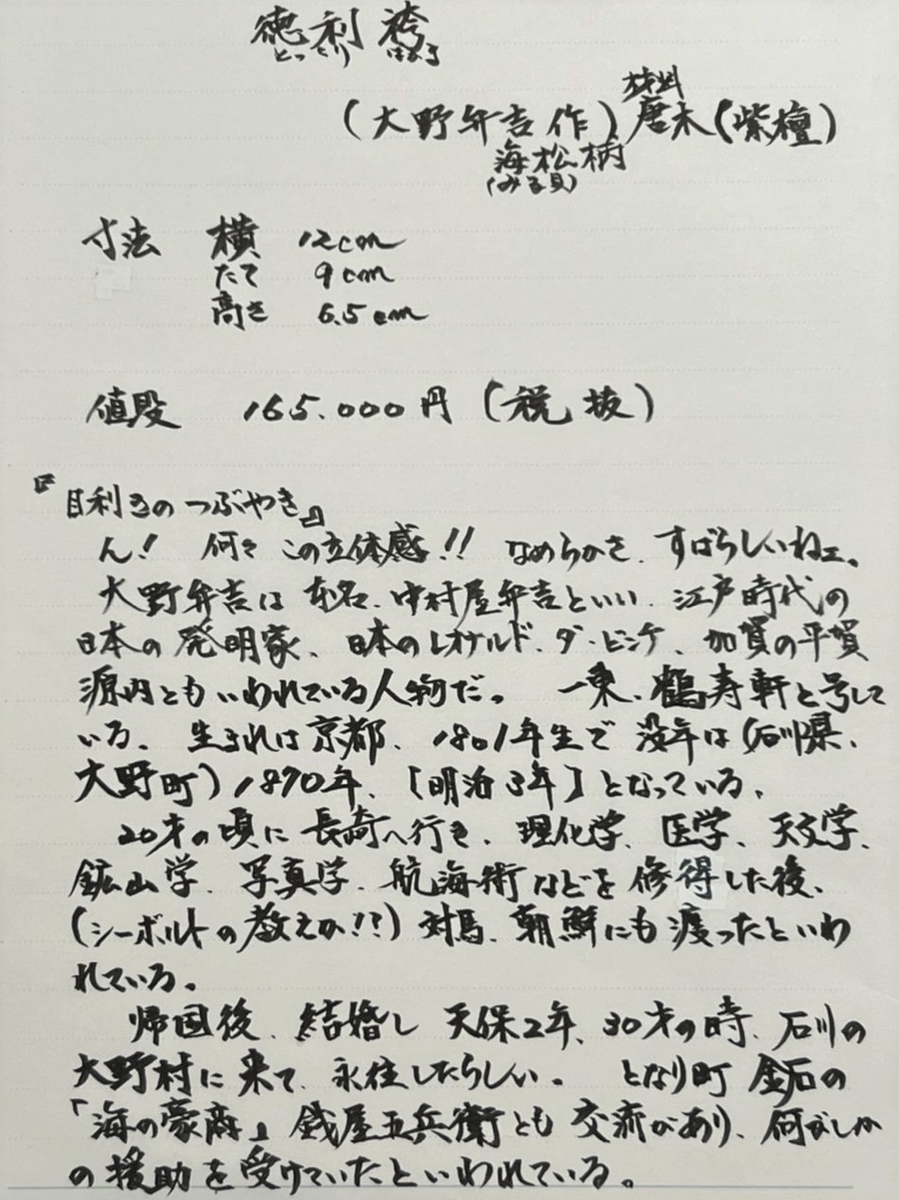 徳利袴
とっくり はかま
(大野弁吉作) 材料 唐木(紫檀)
海松柄
(みる貝)
寸法 横 12cm
たて 9cm
高さ 6.5cm
値段 165.000円(税抜)
『目利きのつぶやき』
ん! 何々この立体感!! なめらかさ、すばらしいねェ。
大野弁吉は本名、中村屋弁吉といい、江戸時代の
日本の発明家、日本のレオナルド・ダ・ビンチ、加賀の平賀
源内ともいわれている人物だ。 一東、鶴寿軒と号して
いる。 生まれは京都、1801年生で没年は(石川県、
大野町)1870年、[明治3年]となっている。
20才の頃に長崎へ行き、理化学、医学、天文学、
鉱山学、写真学、航海術などを修得した後、
(シーボルトの教えか!?)対馬、朝鮮にも渡ったといわ
れている。
帰国後、結婚し天保2年、30才の時、石川の
大野村に来て、永住したらしい。 となり町金石の
「海の豪商」銭屋五兵衛とも交流があり、何がしか
の援助を受けていたといわれている。